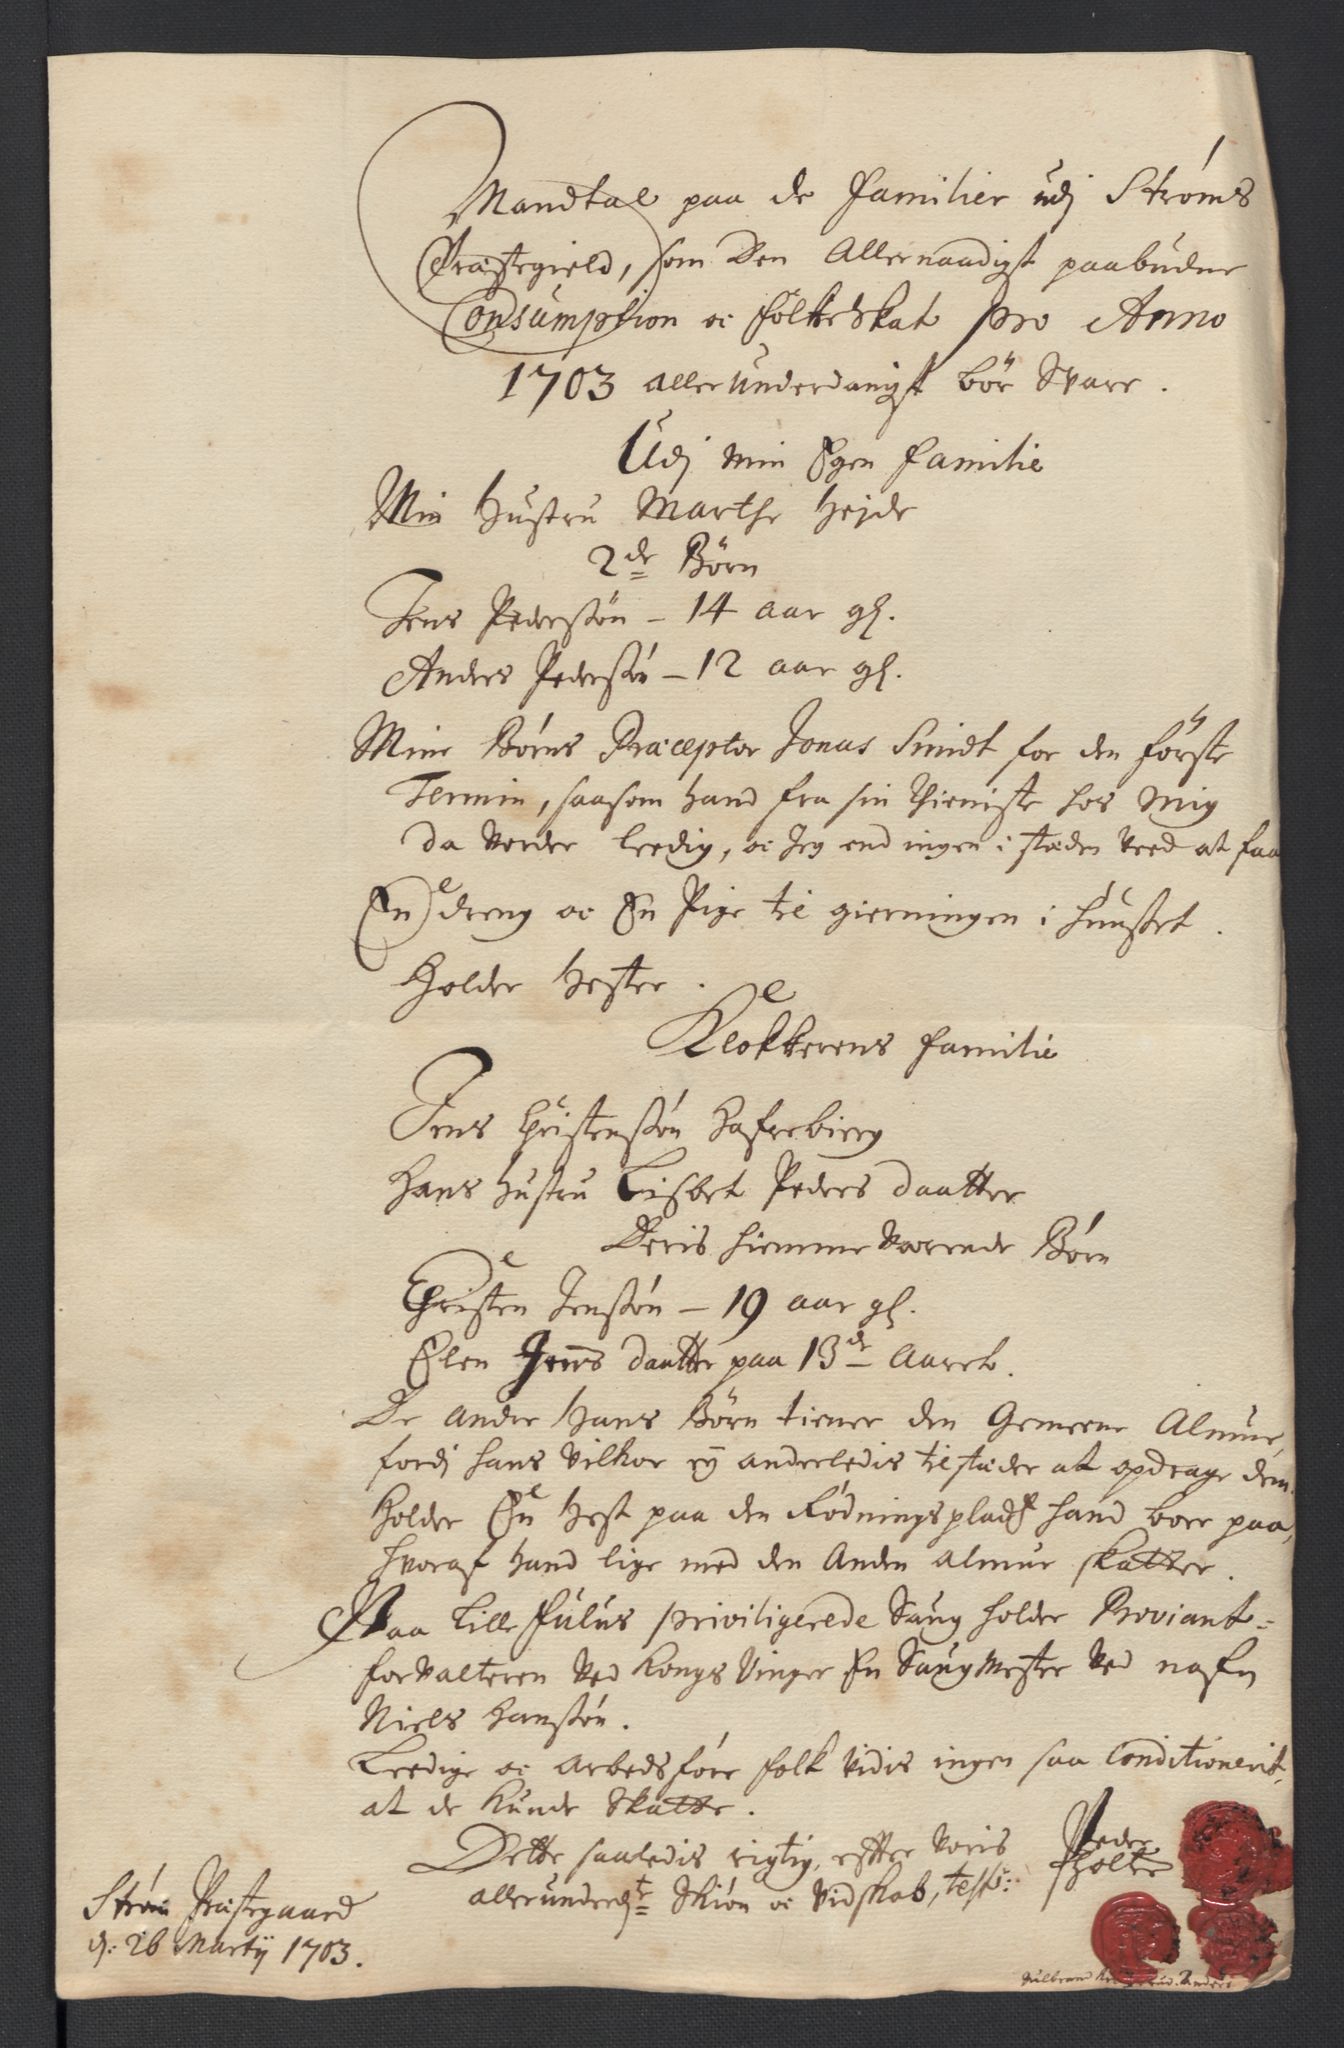 Mandtal paa de Familier udj Strøms
Præstegield, som Den Allernaadigst paabudne
Consumption oc Folkeskat pro Anno
1703 allerunderdanigst bør Svare.
Udj min Egen Familie
Min Hustru Marthe Hejde
2de Børn
Jens Pederssøn – 14 aar gl.
Anders Pederssøn – 12 aar gl.
Mine Børns Præceptor Jonas Smidt for den første
Termin, saasom hand fra sin Thieniste hos mig
da vorder leedig, oc Jeg end ingen i stæden veed at faa
En dreng oc En Pige til gierningen i huuset.
Holder Hester.
Klokkerens Familie
Jens Christenssøn Hafrebierg
Hans Hustru Lisbet Peders daatter
Deris hiemme værende Børn
Christen Jenssøn – 19 aar gl.
Elen Jens daatter paa 13de Aaret.
De andre Hans Børn tiener den Gemeene Almue,
fordj hans vilkor ej anderledis tilstæder at opdrage dem.
Holder En Hest paa den Rødningsplads hand boer paa,
hvoraf hand lige med den Anden almue skatter.
Paa Lille Fulus priviligerede Saug holder Proviant-
forvalteren ved Kongs Vinger En Saugmester ved nafn
Niels Hanssøn.
Leedige oc arbedsføre folk vidis ingen saa Conditionerit,
at de kunde Skatte.
Dette saaledis rigtig, efter voris
allerunderd:te Skiøn oc Vidskab, test:
Peder
Holter
Strøm Præstegaard
d: 26 Martij 1703.